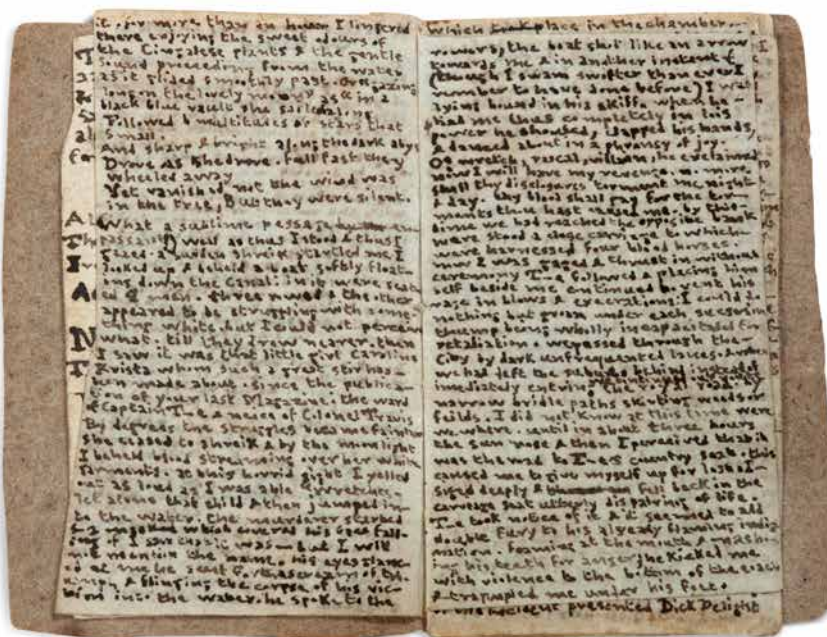 it. for more than an hour I lingered
there enjoying the sweet odours of
the Cingalese plants & the gentle
sound proceeding from the water
as it glided smoothly past. or gazing
long on the lovely moon as in a
black blue vault she sailed along
Followed b multitudes of stars that
Small.
And sharp & bright along the dark abyss
Drove As She drove. full fast they
wheeled away
Yet vanished not the wind was
in the tree, But they were silent.
What a sublime passage
passant) well as thus I stood & thus I
gazed a sudden shreik startled me I
looked up & beheld a boat softly float-
ing down the Canal: in it were seat
ed 4 men. three rowed & the other
appeared to be struggling with some-
thing white. but I could not perceive
what. till they drew nearer. then
I saw it was that little girl Caroline
Krista whom such a great stir has
been made about. since the publica-
tion of your last Magazine. the ward
of Captain & neice of Colonel Travis
By degrees the struggles became fainter
she ceased to shreik & by the moonlight
I beheld blood streaming over her white
garments. at this horrid sight I yelled
out as loud as I was able wretches.
let alone that child & then jumped in-
to the water. the murderer started
which covered his face fall-
ing I saw it was — but I will
not mention the name. his eyes glanc-
ed at me he sent
& flinging the corpse of his vic-
tim into the water. he spoke to the
which place in the chamber.
rowers, the boat shot like an arrow
towards me & in another instant
(though I swam swifter than ever I
remember to have done before) I was
lying bound in his skiff. when he
had me thus completely in his
power he shouted, clapped his hands,
& danced about in a phrensy of joy.
Oh wretch, rascal, villian, he exclaimed
now I will have my revenge. no more
shall thy disclosures torment me night
& day. thy blood shall pay for the tor-
ments thou hast caused me. by this
time we had reached the opposite bank
were stood a close carriage to which
were harnessed four blood horses.
into I was gaged & thrust in without
ceremony followed & placing him
self beside me continued to vent his
rage in blows & execrations: I could do
nothing but groan under each successive
thump being wholly incapacitated for
retaliation. we passed through the
City by dark unfrequented laises. & when
we had left the suburbs behind instead of
imediately entring the
narrow bridle paths skirting woods or
feilds. I did not know at this time were
we where. until in about three hours
the Sun rose & then I perceived that it
was the road to country seat. this
caused me to give myself up for lost. I
siged deeply & fell back in the
carriage seat utterly dispairing of life.
took notice of it & it seemed to add
double fury to his already flaming indig
nation. foaming at the mouth & nashing
his teeth for anger, he kicked me
with violence to the bottom of the coach
& trampled me under his feet.
presented Dick Delight